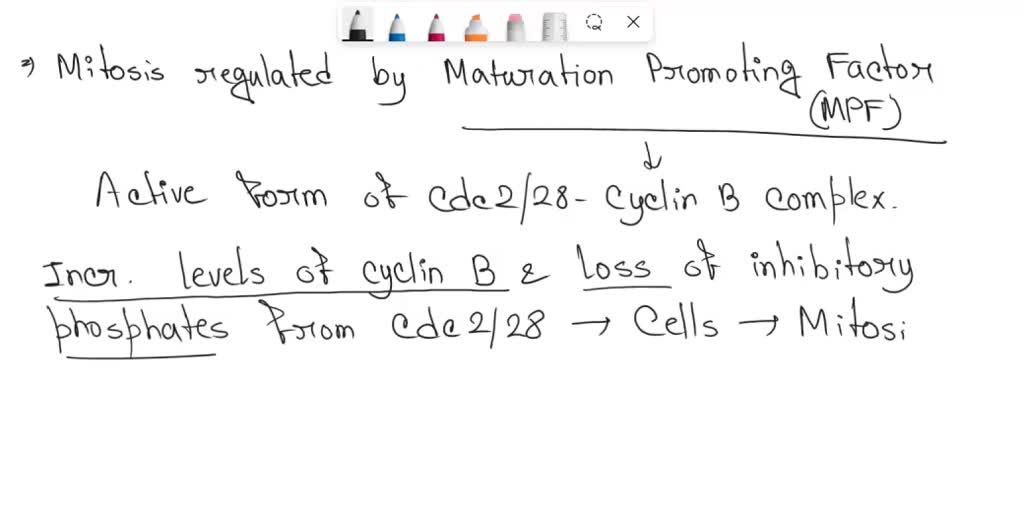 ⇒ Mitosis regulated by Maturation Promoting Factor
(MPF)
↓
Active form of Cdc2/28- Cyclin B complex.
Incr. levels of cyclin B & Loss of inhibitory
phosphates from Cdc2/28 → Cells → Mitosi